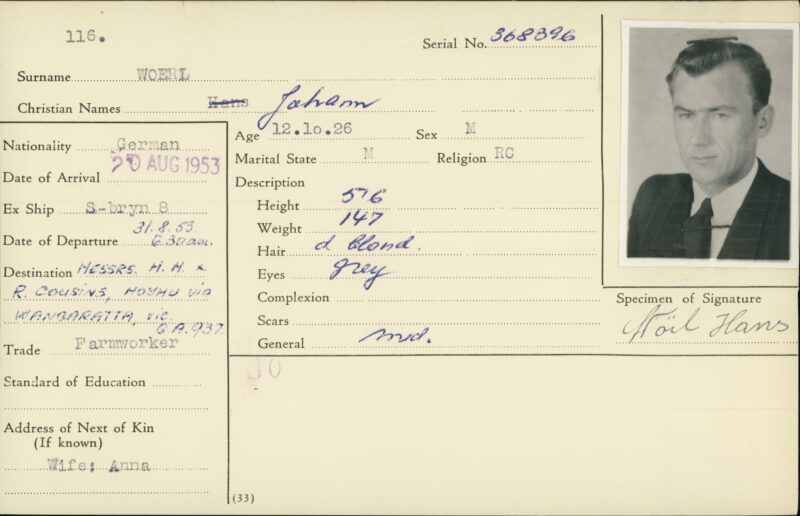 116.
Serial No. 368396
Surname WOERL
Christian Names Hans Johann
Nationality German
Date of Arrival 20 AUG 1953
Ex Ship S-bryn 8
31.8.53.
Date of Departure 6.30am.
Destination MESSRS. H. H. &
R. COUSINS, MOYHU via
WANGARATTA, VIC.
6A.937.
Trade Farmworker
Standard of Education
Address of Next of Kin
(If known)
Wife; Anna
Age 12.10.26 Sex M
Marital State M Religion RC
Description
Height 5'6
Weight 147
Hair d blond.
Eyes grey
Complexion
Scars
General med.
(33)
Specimen of Signature
Hans